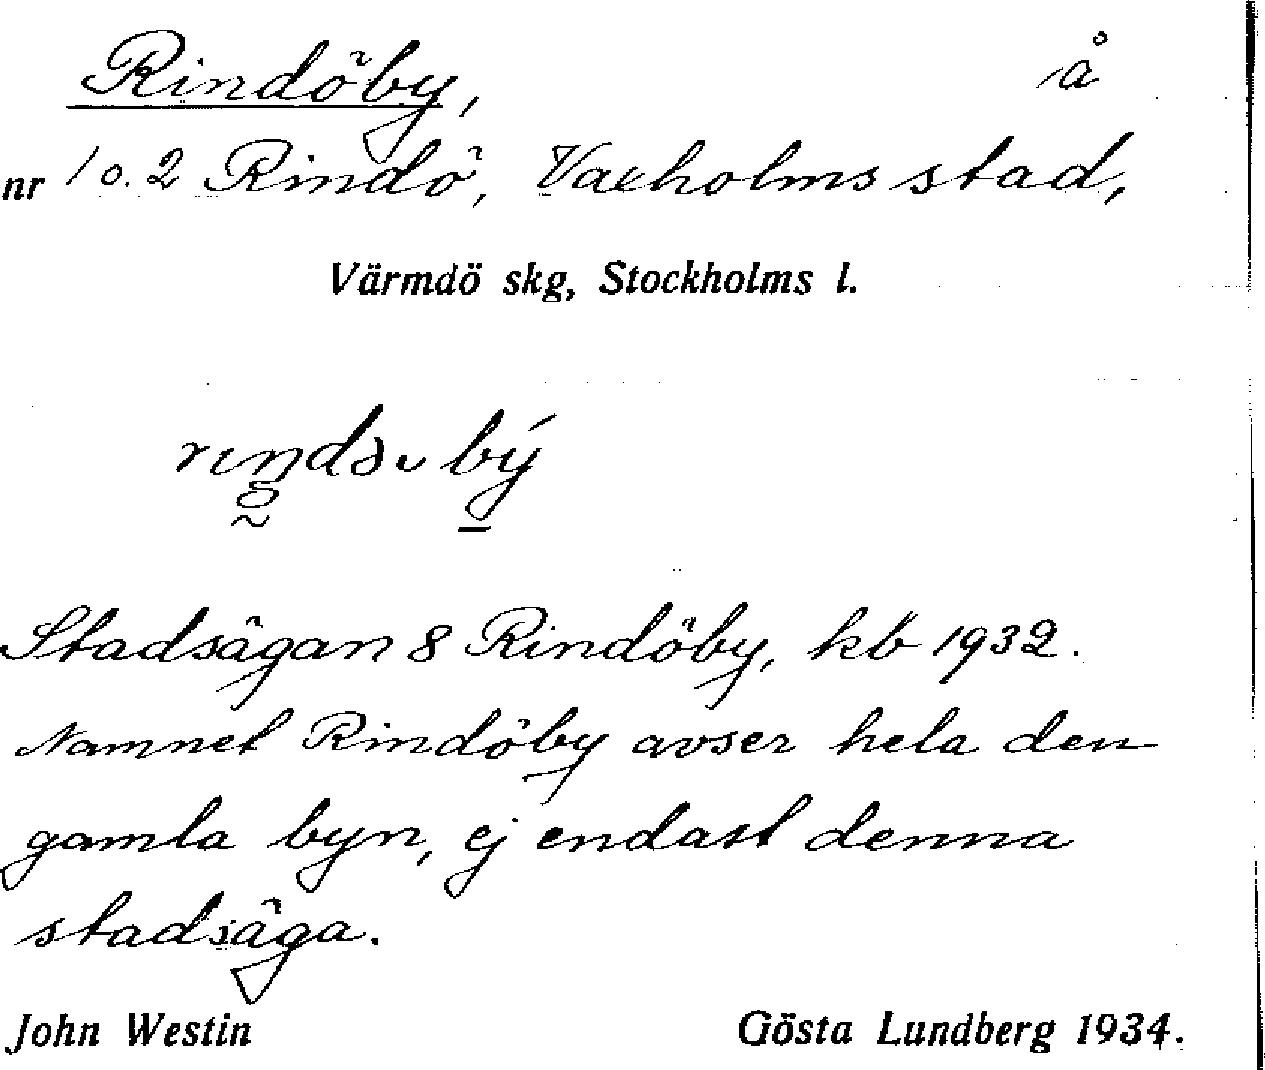 Rindöby, å
nr 1 o. 2 Rindö, Vaxholms stad,
Värmdö skg, Stockholms l.
Stadsägan 8 Rindöby, kb 1932.
Namnet Rindöby avser hela den
gamla byn, ej endast denna
stadsäga.
John Westin Gösta Lundberg 1934.